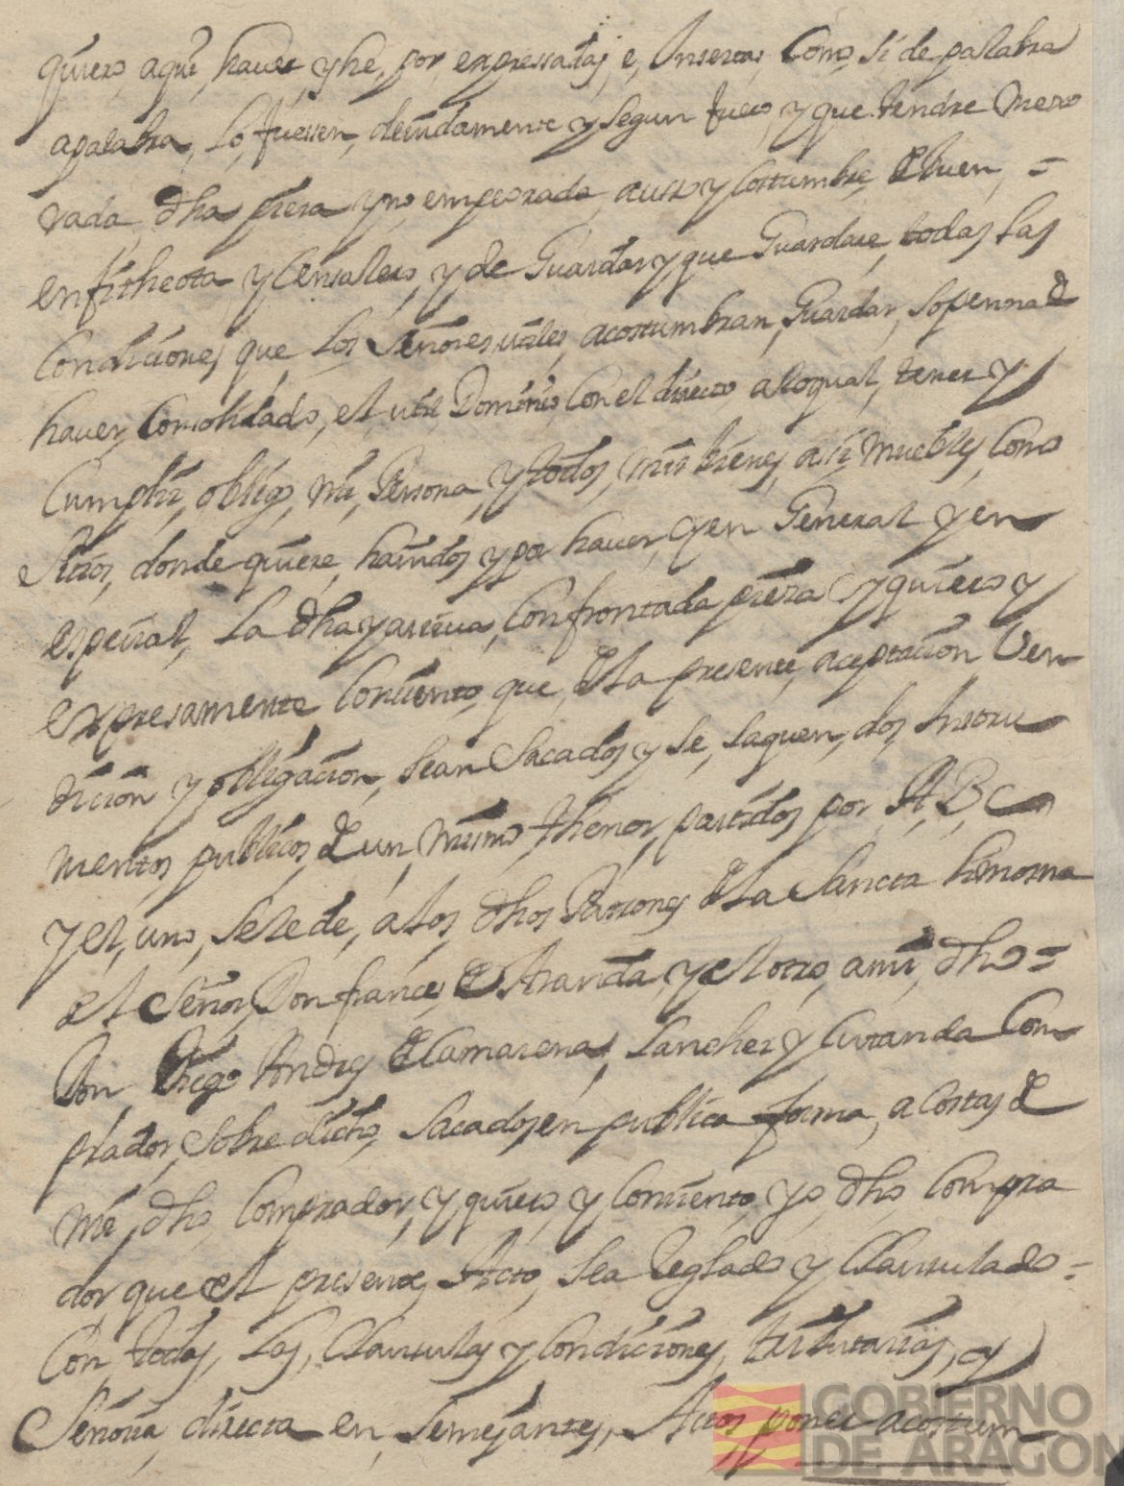 quiero, aqui, hauer, y he, por expressatas, e, Insertas, Como, si de palabra
apalabra, lo, fuessen, deuidamente y segun fuero, y que tendre Mexo
rada, dha pieza y no empeorada, a uso y Costumbre, de buen, =
enfitheota y Censalero, y de Guardar y que Guardare, todas las
Condiciones que, los Señores utiles, acostumbran, Guardar, so penna de
hauer, Consolidado, el, util, Dominio, Con el directo, alo qual, tener y
Cumplir, obligo, mi, Persona, y todos, mis bienes, assi Muebles, Como
sitios, donde quiere, hauidos y por hauer, y en General y en
especial, la dha y arriua, Confrontada pieza, y quiero y
expresamente Consiento, que, de la presente, aceptacion Ven
dicion y obligacion, sean Sacados y se, saquen, dos, Instru
mentos publicos, de un, mismo, thenor, partidos por A, B, C
y el, uno, se le de, a los, dhos Patrones de la Sancta limosna
del Señor, Don frances, de Aranda, y el otro, a mi, dho =
Don, Diego Andres de Camarena, Sanchez y Com
prador, sobre dicho, Sacados en publica forma, a Costas de
mi, dho, Comprador, y quiero, y Consiento, yo, dho, Compra
dor que el presente, Acto, sea Reglado y Clausulado =
Con todas, las, Clausulas y Condiciones, tributarias, y
Señoria, directa en, semejantes, Actos, poner acostum
GOBIERNO
DE ARAGON